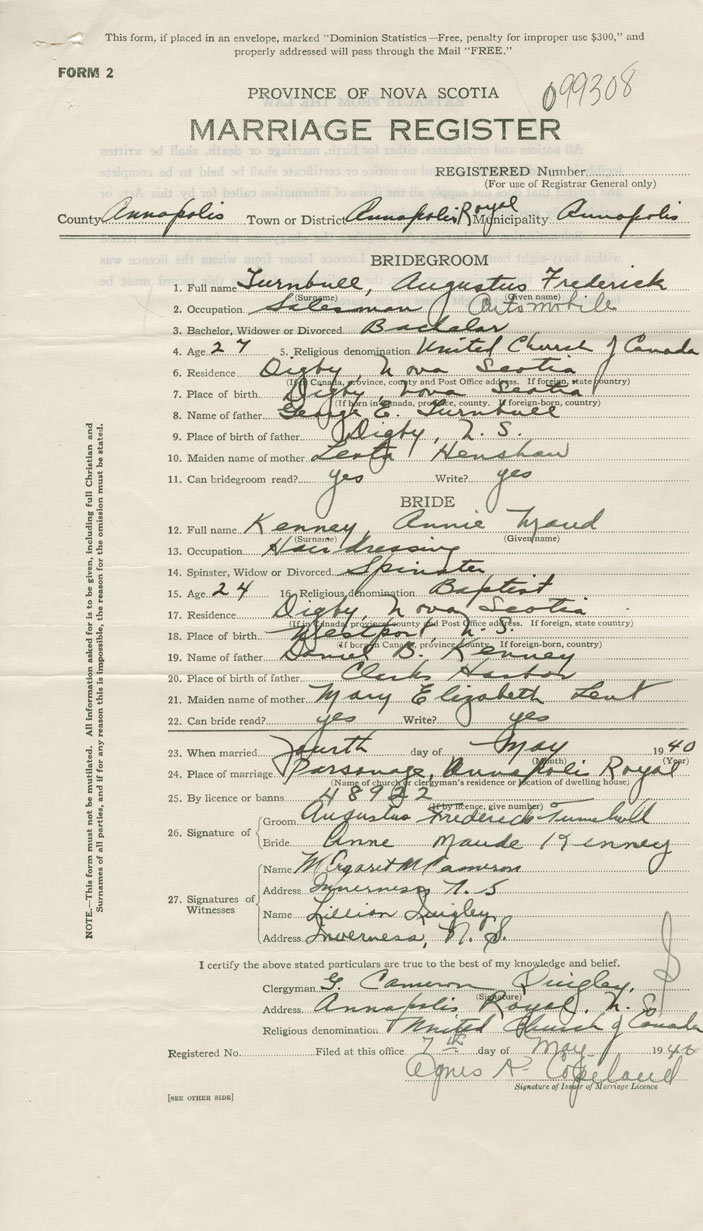 This form, if placed in an envelope, marked "Dominion Statistics—Free, penalty for improper use $300," and
properly addressed will pass through the Mail "FREE."
FORM 2
PROVINCE OF NOVA SCOTIA 099308
MARRIAGE REGISTER
REGISTERED Number
(For use of Registrar General only)
County Annapolis Town or District Annapolis Royal Municipality Annapolis
BRIDEGROOM
1. Full name Turnbull, Augustus Frederick
(Surname) (Given name)
2. Occupation Salesman Automobile
3. Bachelor, Widower or Divorced Bachelor
4. Age 27 5. Religious denomination United Church of Canada
6. Residence Digby, Nova Scotia
(If in Canada, province, county and Post Office address. If foreign, state country)
7. Place of birth Digby, Nova Scotia
(If born in Canada, province, county. If foreign-born, country)
8. Name of father George E. Turnbull
9. Place of birth of father Digby, N. S.
10. Maiden name of mother Henshaw
11. Can bridegroom read? yes Write? yes
BRIDE
12. Full name Kenney, Annie Maud
(Surname) (Given name)
13. Occupation Hairdressing
14. Spinster, Widow or Divorced Spinster
15. Age 24 16. Religious denomination Baptist
17. Residence Digby, Nova Scotia
(If in Canada, province, county and Post Office address. If foreign, state country)
18. Place of birth Westport, N. S.
(If born in Canada, province, county. If foreign-born, country)
19. Name of father Daniel B. Kenney
20. Place of birth of father Clarks Harbor
21. Maiden name of mother Mary Elizabeth Lent
22. Can bride read? yes Write? yes
23. When married fourth day of May 1940
(Month) (Year)
24. Place of marriage Parsonage, Annapolis Royal
(Name of church or clergyman's residence or location of dwelling house)
25. By licence or banns
(If by licence, give number)
26. Signature of Groom Augustus Frederick Turnbull
Bride Anne Maude Kenney
27. Signatures of Witnesses
Name Margaret M Cameron
Address Inverness N. S
Name Lillian Quigley
Address Inverness, N. S.
I certify the above stated particulars are true to the best of my knowledge and belief.
Clergyman G. Cameron Quigley,
(Signature)
Address Annapolis Royal, N. S.
Religious denomination United Church of Canada
Registered No. Filed at this office 7th day of May 1940
Agnes A. Copeland
Signature of Issuer of Marriage Licence
[SEE OTHER SIDE]
NOTE.—This form must not be mutilated. All information asked for is to be given, including full Christian and
Surnames of all parties, and if for any reason this is impossible, the reason for the omission must be stated.